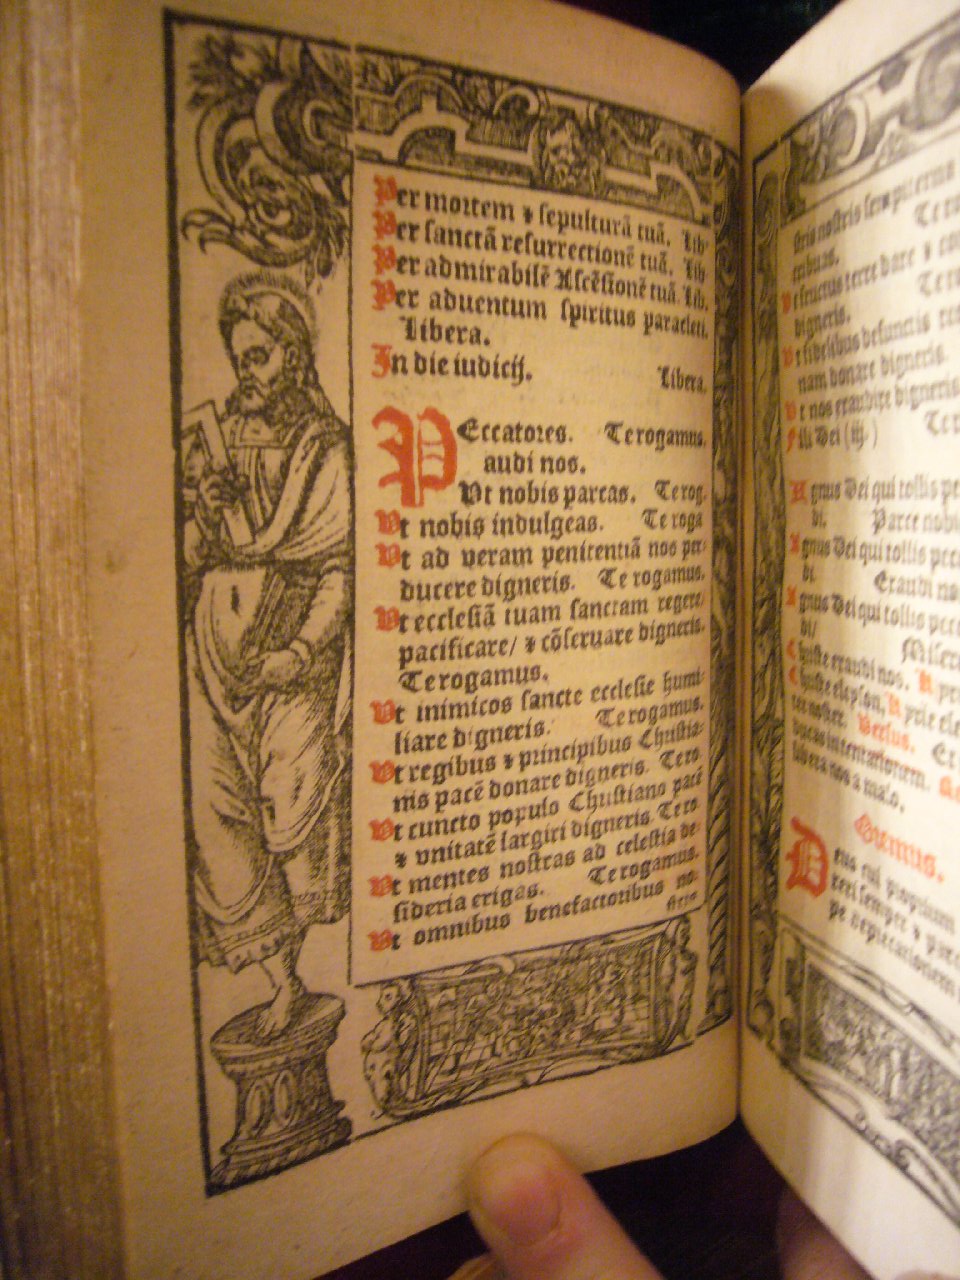 Per mortem ⁊ sepulturā tuā. Lib
Per sanctā resurrectionē tuā. Lib
Per admirabilē Ascēsionē tuā. Lib.
Per aduentum spiritus paracleti.
Libera.
In die iudicij. Libera.
PEccatores. Te rogamus.
audi nos.
Vt nobis parcas. Te rog.
Vt nobis indulgeas. Te roga
Vt ad veram penitentiā nos per
ducere digneris. Te rogamus.
Vt ecclesiā tuam sanctam regere/
pacificare/ ⁊ cōseruare digneris.
Te rogamus.
Vt inimicos sancte ecclesie humi-
liare digneris. Te rogamus.
Vt regibus ⁊ principibus Christia-
nis pacē donare digneris. Te ro
Vt cuncto populo Christiano pacē
⁊ vnitatē largiri digneris. Te ro.
Vt mentes nostras ad celestia de-
sideria erigas. Te rogamus.
Vt omnibus benefactoribus no-
stris
stris nostris sempiterna
tribuas. Te ro
Vt fructus terre dare ⁊ co
digneris. Te ro
Vt fidelibus defunctis re
nam donare digneris.
Vt nos exaudire digneris
Fili Dei (iij.) Te ro
Agnus Dei qui tollis pe
di. Parce nobi
Agnus Dei qui tollis pec
di. Exaudi no
Agnus Dei qui tollis pecc
di/ Miser
Christe exaudi nos. Kyri
Christe eleyson, Kyrie ele
ter noster. Versus. Et
ducas in tentationem.
libera nos a malo.
Oremus.
Deus cui proprium
reri semper ⁊ parc
pe deprecationem